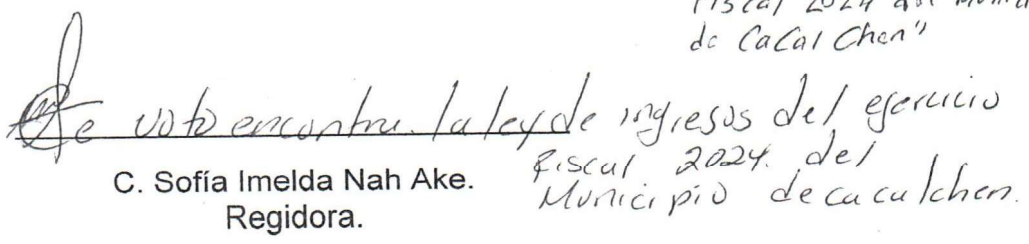 Fiscal 2024 del Munici
de CaCalChen"
Se voto encontra. la ley de ingresos del egercicio
Fiscal 2024. del
Municipio de cacalchen.
C. Sofía Imelda Nah Ake.
Regidora.